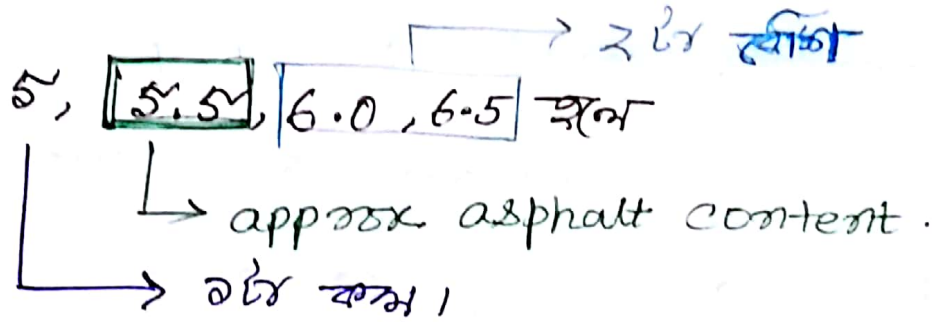 → ২ টা বেশি
5, 5.5, 6.0, 6.5 হলে
→ approx asphalt content.
→ ১টা কম।